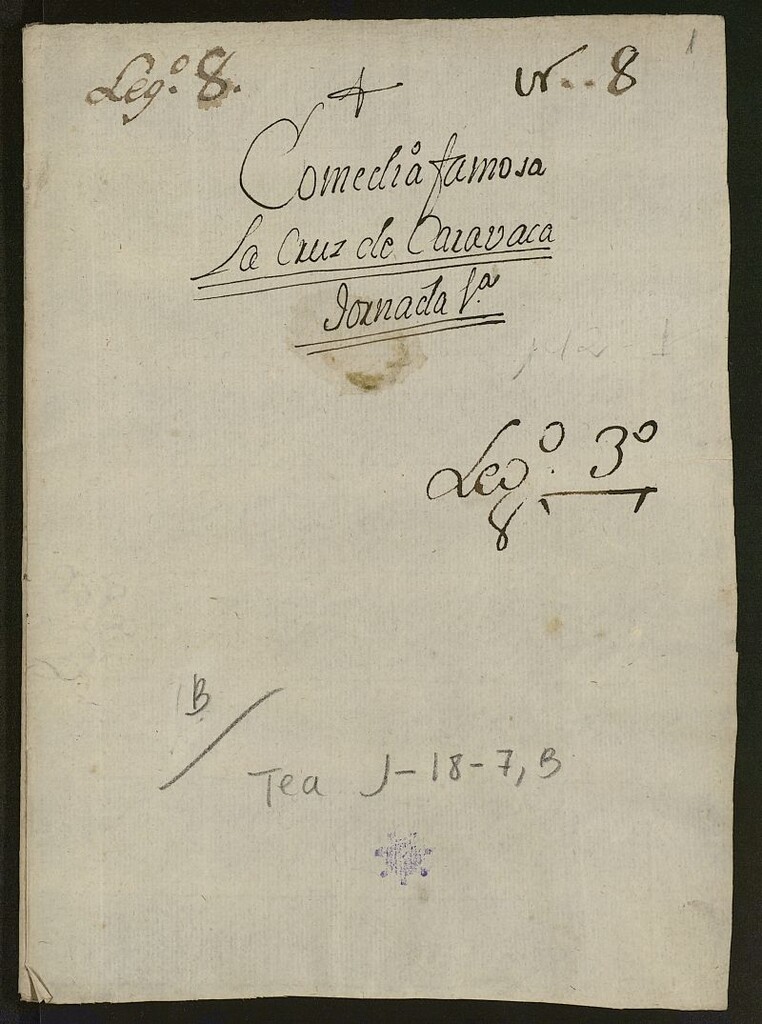 1
Leg.º 8. + nr.. 8
Comedia famosa
La Cruz de Caravaca
Jornada 1.ª
Leg.º 3º
8
B
Tea J-18-7, B